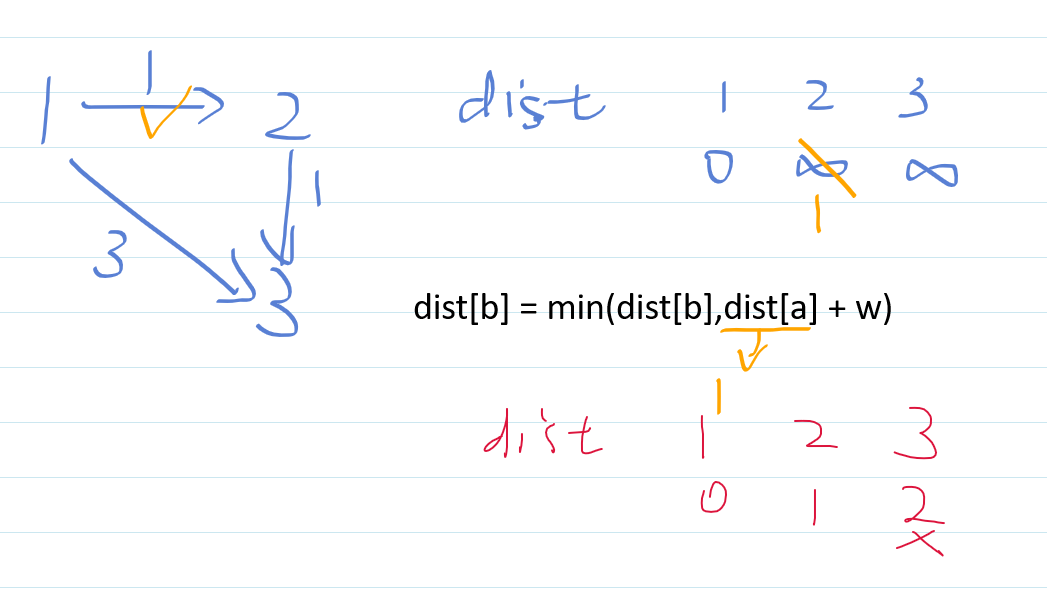 1
1 2 dist 1 2 3
0 ∞ ∞
1
1
3
3
dist[b] = min(dist[b],dist[a] + w)
1
dist 1 2 3
0 1 2